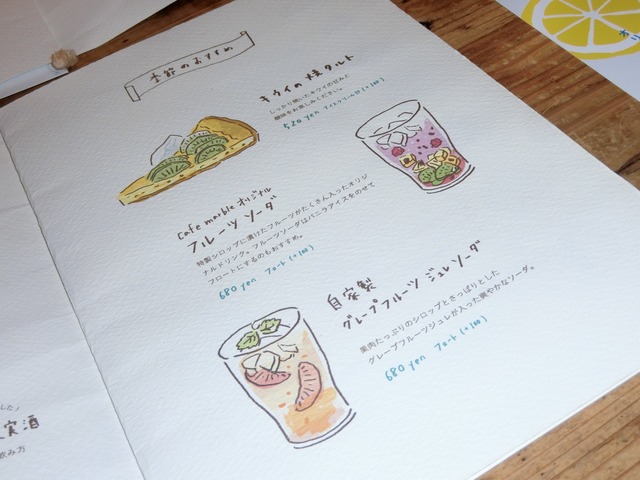 季節のおすすめ
キウイの焼タルト
しっかり焼いたキウイの甘みと
酸味をお楽しみください。
520 yen アイスクリーム付(+100)
Cafe marble オリジナル
フルーツソーダ
特製シロップに漬けたフルーツがたくさん入ったオリジ
ナルドリンク。フルーツソーダはバニラアイスをのせて
フロートにするのもおすすめ。
680 yen フロート(+100)
自家製
グレープフルーツ ジュレソーダ
果肉たっぷりのシロップとさっぱりとした
グレープフルーツジュレが入った爽やかなソーダ。
680 yen フロート(+100)
実酒
飲み方